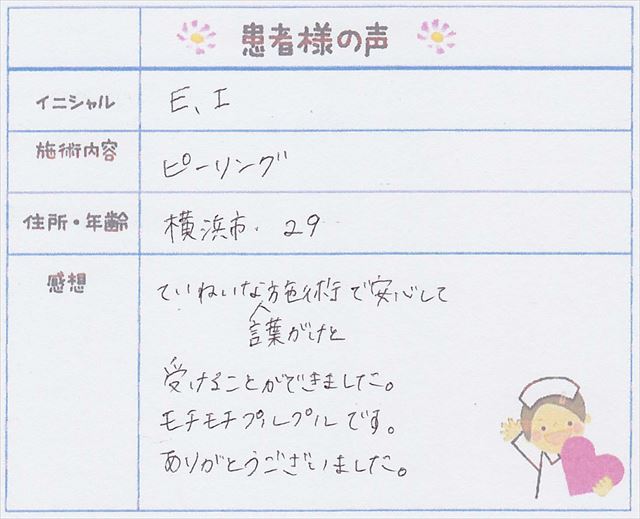 患者様の声
イニシャル
E、I
施術内容
ピーリング
住所・年齢
横浜市. 29
感想
ていねいな施術で安心して
言葉がけと
受けることができました。
モチモチプルプルです。
ありがとうございました。